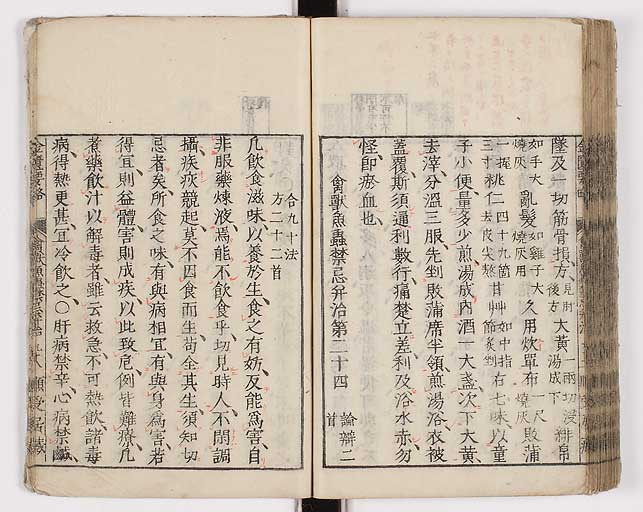 墜及一切筋骨損方 見肘後方 大黄 一兩切浸湯成下 緋帛
如手大燒灰 亂髮 如雞子大燒灰用 久用炊單布 一尺燒灰 敗蒲
一握三寸 桃仁 四十九箇去皮尖熬 甘艸 如中指節炙剉 右七味以童
子小便量多少煎湯成内酒一大盞次下大黄
去滓分溫三服先剉敗蒲席半領煎湯浴衣被
蓋覆斯須通利數行痛楚立差利及浴水赤勿
怪卽瘀血也
禽獸魚蟲禁忌并治第二十四 論辯二首
合九十法
方二十二首
凡飲食滋味以養於生食之有妨反能爲害自
非服藥煉液焉能不飲食乎切見時人不閑調
攝疾疢競起莫不因食而生苟全其生須知切
忌者矣所食之味有與病相宜有與身爲害若
得宜則益體害則成疾以此致危例皆難療凡
煮藥飲汁以解毒者雖云救急不可熱飲諸毒
病得熱更甚宜冷飲之○肝病禁辛心病禁鹹
金匱要略